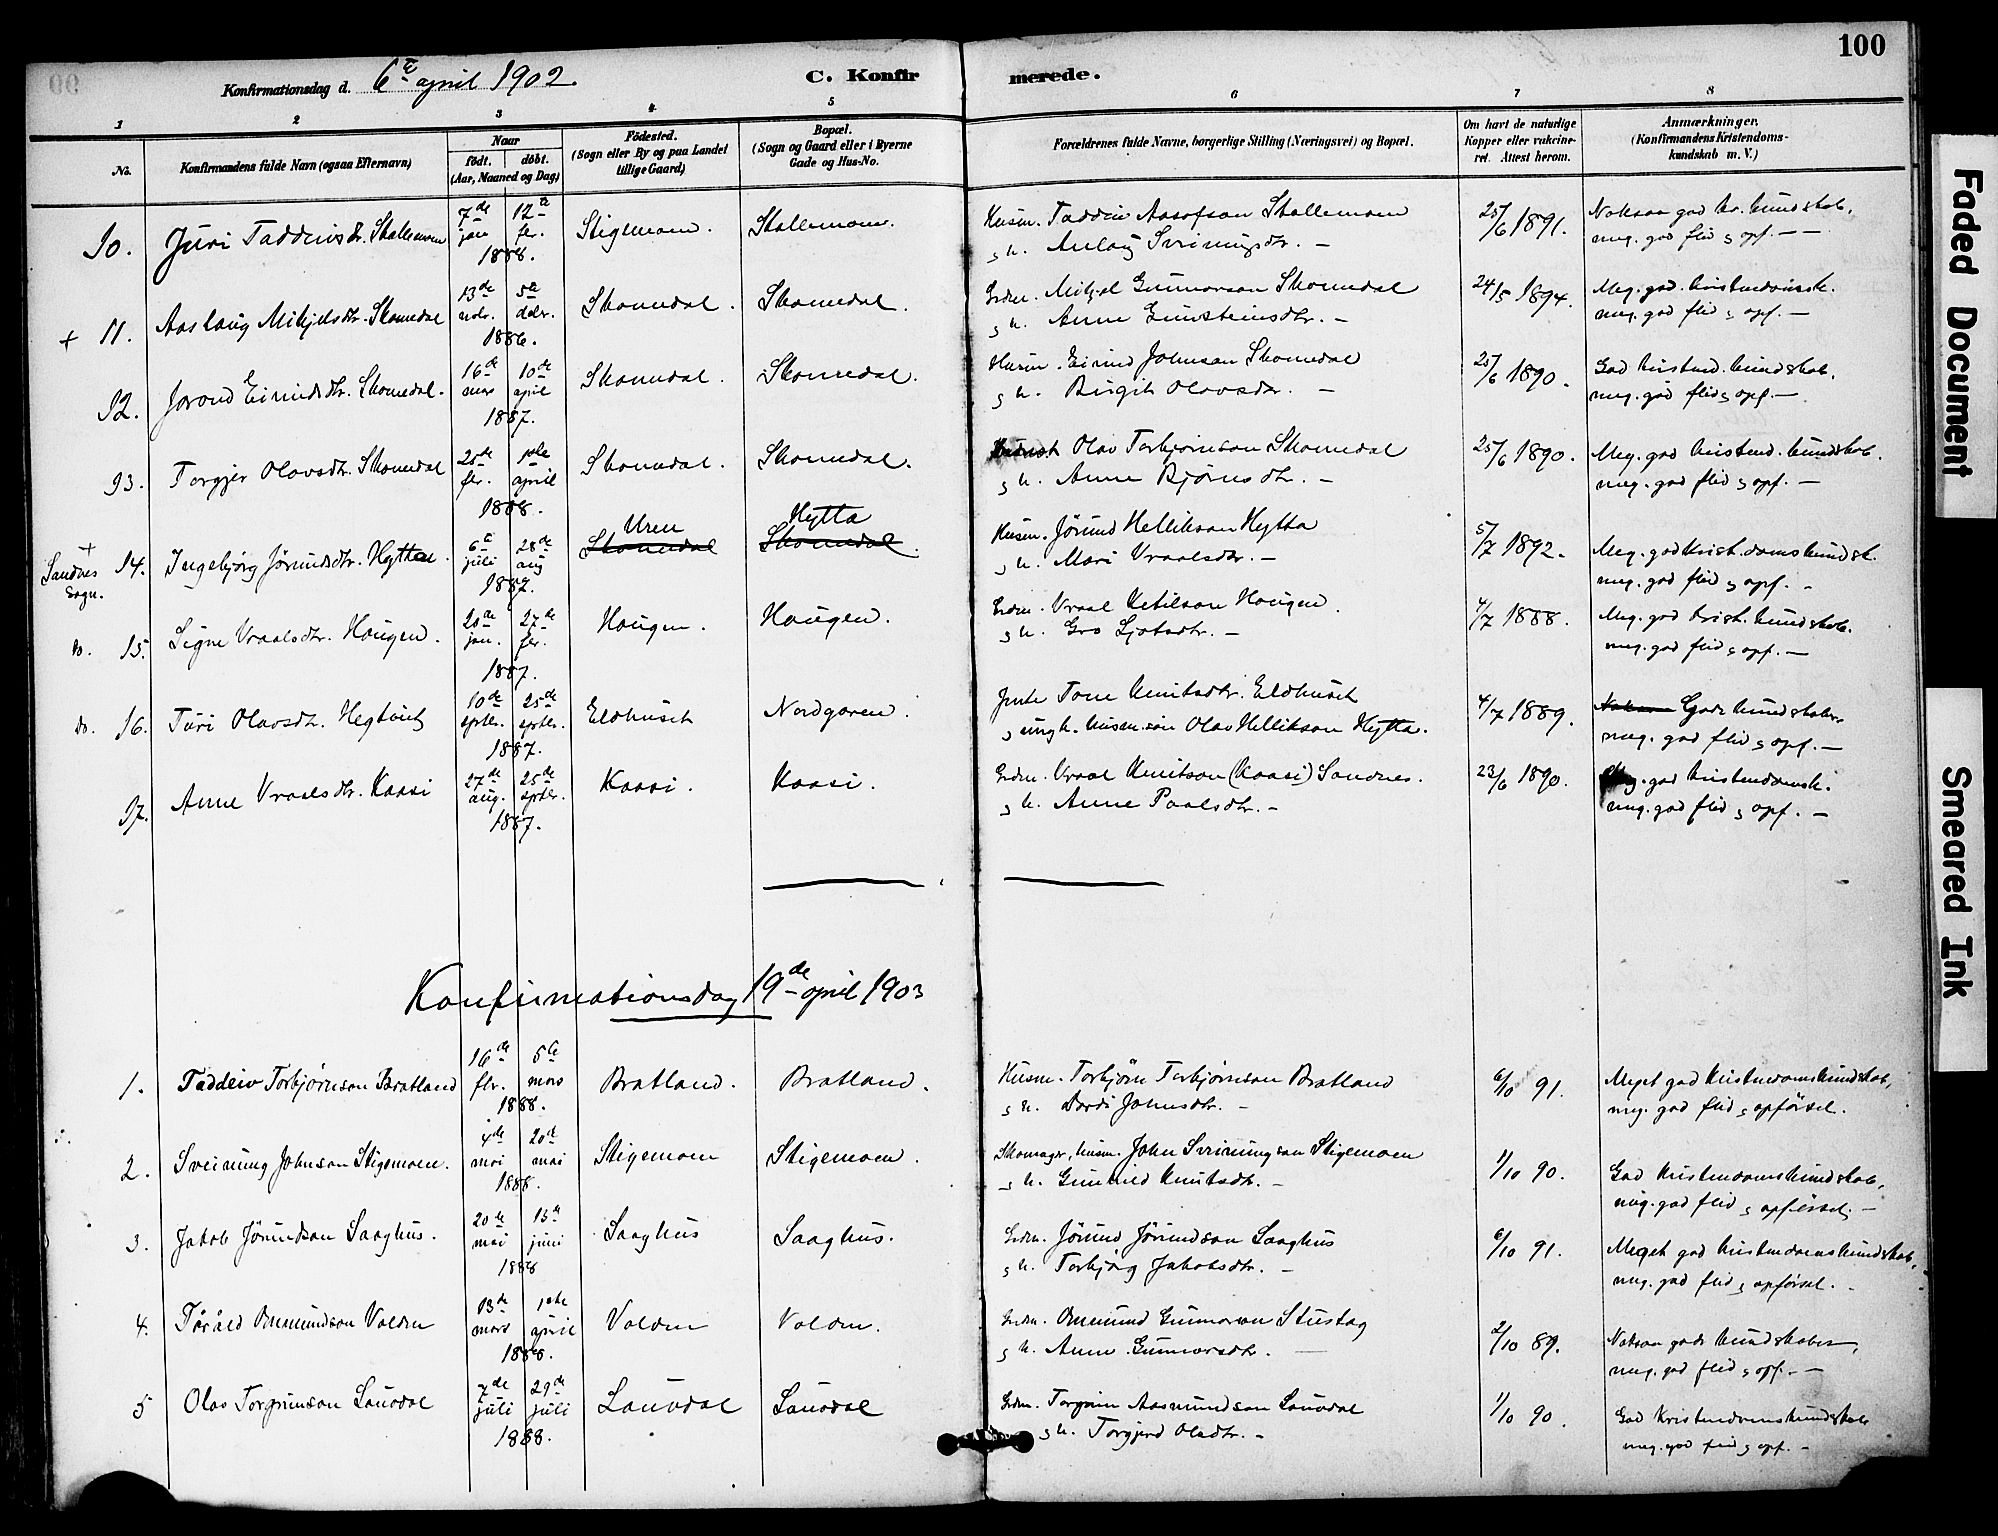 100
Konfirmationsdag d. 6te april 1902.
C. Konfirmerede.
1 2 3 4 5 6 7 8
No.
Konfirmandens fulde Navn (ogsaa Efternavn)
Naar
født. døbt.
(Aar, Maaned og Dag)
Fødested.
(Sogn eller By og paa Landet
tillige Gaard)
Bopæl.
(Sogn og Gaard eller i Byerne
Gade og Hus-No.
Forældrenes fulde Navne, borgerlige Stilling (Næringsvei) og Bopæl.
Om havt de naturlige
Kopper eller vakcine-
ret. Attest herom.
Anmærkninger.
(Konfirmandens Kristendoms-
kundskab m. V.)
10. Juri Taddeivsdr. Stallemoen 7de jan 12te fbr. 1888. Stigemoen. Stallemoen. Husm. Taddeiv Aasofson Stallemoen 25/6 1891. Noksaa god kr. kundskab,
g h. Anlaug Sveinungsdtr. — meg. god flid g opf. —
+ 11. Aaslaug Mikjelsdtr. Skomedal 13de nvbr. 5te dcbr. 1886. Skomedal. Skomedal. Grdm. Mikjel Gunnarson Skomedal 24/5 1894. Meg. god kristendomsk.
g h. Anne Gunsteinsdtr. — meg. god flid g opf. —
12. Jorond Eivindsdtr. Skomedal. 16de mars 10de april 1887. Skomedal. Skomedal. Husm. Eivind Johnson Skomedal 25/6 1890. God kristend. kundskab.
g h. Birgit Olavsdtr. — meg. god flid g opf. —
13. Torgjer Olavsdtr. Skomedal 25de fbr. 1ste april 1888. Skomedal. Skomedal. Olav Torbjørnson Skomedal 25/6 1890. Meg. god kristend. kundskab.
g h. Anne Bjørnsdtr. — meg. god flid g opf. —
+ Sandnes Sogn. 14. Ingebjørg Jørundsdtr. Hytta. 6te juli 28de aug 1887. Uren Skomedal Hytta Skomedal. Husm. Jørund Hellikson Hytta 5/7 1892. Meg. god krist.doms kundsk.
g h. Mari Vraalsdtr. — meg. god flid g opf. —
Do. 15. Signe Vraalsdtr. Haugen. 20de jan. 27de fbr. 1887. Haugen. Haugen. Grdm. Vraal Ketilson Haugen. 4/7 1888. Meg. god krist. kundskab.
g h. Gro Ljotsdtr. — meg. god flid g opf. —
Do. 16. Turi Olavsdtr. Hegtveit 10de sptbr. 25de sptbr. 1887. Eldhuset Nordgaren. Jente Tone Knutsdtr. Eldhuset 4/7 1889. Gode kundskaber,
g ungk. husm.søn Olav Hellikson Hytta. meg. god flid g opf. —
17. Anne Vraalsdtr. Kaasi 27de aug. 25de sptbr. 1887. Kaasi. Kaasi. Grdm. Vraal Knutson (Kaasi) Sandnes. 23/6 1890. Meg. god kristendomsk.
g h. Anne Paalsdtr. — meg. god flid g opf. —
Konfirmationsdag 19de april 1903
1. Taddeiv Torbjørnson Bratland 16de fbr. 5te mars 1888. Bratland. Bratland. Husm. Torbjørn Torbjørnson Bratland 6/10 91. Meget god kristendomskundskab,
g h. Dordi Johnsdtr. — meg. god flid g opførsel.
2. Sveinung Johnson Stigemoen. 4de mai 20de mai 1888. Stigemoen Stigemoen. Skomager, husm. John Sveinungson Stigemoen 1/10 90. God kristendomskundskab,
g h. Gunhild Knutsdtr. — meg. god flid g opførsel. —
3. Jakob Jørundson Saaghus. 20de mai 15de juni 1888 Saaghus Saaghus. Grdm. Jørund Jørundson Saaghus 6/10 91. Meget god kristendomskundskab,
g h. Torbjørg Jakobsdtr. — meg. god flid g opførsel. —
4. Tårald Ommundson Valden 13de mars 1ste april 1888. Valden Valden. Grdm. Ommund Gunnarson Stustag 2/10 89. Noksaa gode kundskaber,
g h. Anne Gunnarsdtr. — meg. god flid g opf. —
5 Olav Torgrimson Lauvdal 7de juli 29de juli 1888. Lauvdal Lauvdal Grdm. Torgrim Aasmundson Lauvdal 1/10 90. God kristendomskundskab
g h. Torgjerd Olavdtr. — meg. god flid g opf. —
Faded Document
Smeared Ink